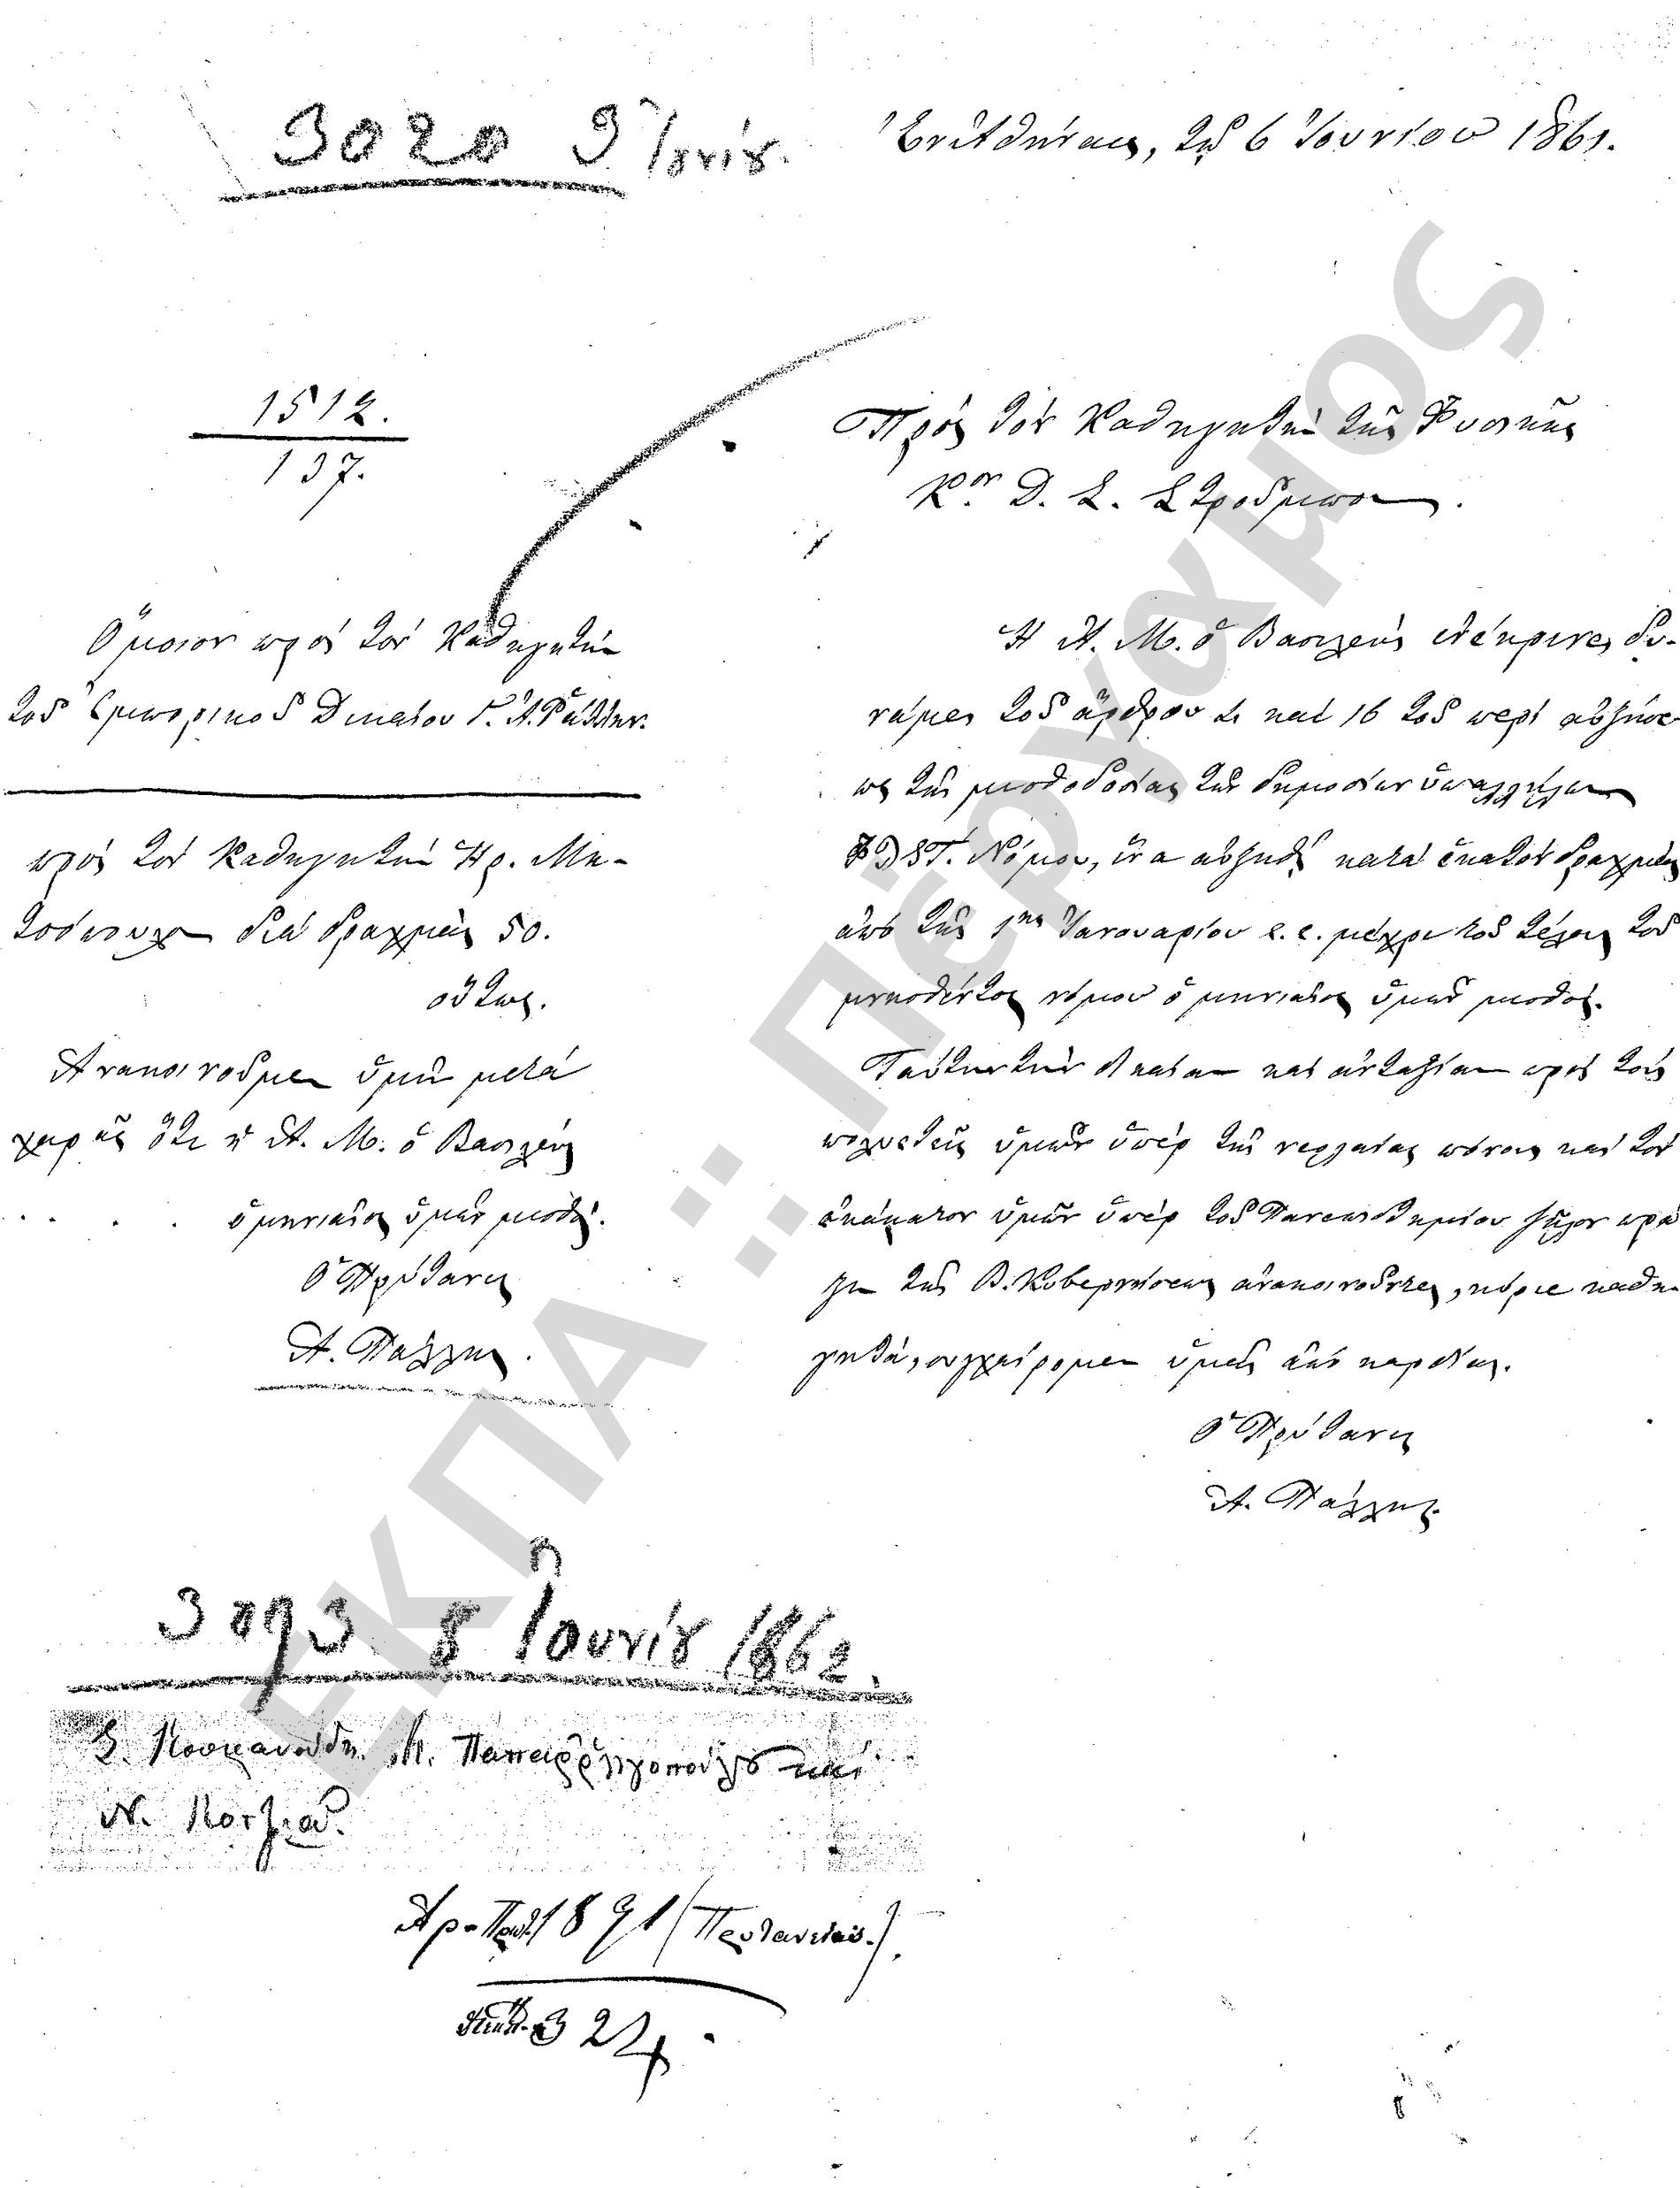 3020 9 Ἰουνίου.
Ἐν Ἀθήναις, τῇ 6 Ἰουνίου 1861.
1512.
137.
Πρὸς τὸν Καθηγητὴν τῆς Φυσικῆς
Κον. Δ. Σ. Στρούμπον.
Ὅμοιον πρὸς τὸν Καθηγητὴν
τοῦ Ἐμπορικοῦ Δικαίου Γ. Ἀ. Ῥάλλην.
πρὸς τὸν Καθηγητὴν Ἡρ. Μη-
τσόπουλον διὰ δραχμὰς 50.
οὕτως.
Ἀνακοινοῦμεν ὑμῖν μετὰ
χαρᾶς ὅτι ἡ Α. Μ. ὁ Βασιλεὺς
. . . . ὁ μηνιαῖος ὑμῶν μισθός.
Ὁ Πρύτανις
Α. Πάλλης.
Ἡ Α. Μ. ὁ Βασιλεὺς ἐνέκρινε, δυ-
νάμει τοῦ ἄρθρου καὶ 16 τοῦ περὶ αὐξήσε-
ως τῆς μισθοδοσίας τῶν δημοσίων ὑπαλλήλων
Νόμου, ἵνα αὐξηθῇ κατὰ ἑκατὸν δραχμὰς
ἀπὸ τῆς 1ης Ἰανουαρίου ἐ. ἔ. μέχρι τοῦ τέλους τοῦ
μνησθέντος νόμου ὁ μηνιαῖος ὑμῶν μισθός.
Ταύτην τὴν δικαίαν καὶ ἀνταξίαν πρὸς τοὺς
πολυετεῖς ὑμῶν ὑπὲρ τῆς νεολαίας πόνους καὶ τὸν
ἀκάματον ὑμῶν ὑπὲρ τοῦ Πανεπιστημίου ζῆλον πρᾶ
ξιν τῆς Β. Κυβερνήσεως ἀνακοινοῦντες, κύριε καθη-
γητά, συγχαίρομεν ὑμᾶς ἀπὸ καρδίας.
Ὁ Πρύτανις
Α. Πάλλης.
3093 8 Ἰουνίου 1862.
Σ. Κουμανούδη. Κ. Παπαρρηγοπούλου καὶ
Ν. Κοτζιᾶ.
Ἀρ. Πρωτ. 1891 (Πρυτανείας).
324.
ΕΚΠΑ :: Πέργαμος